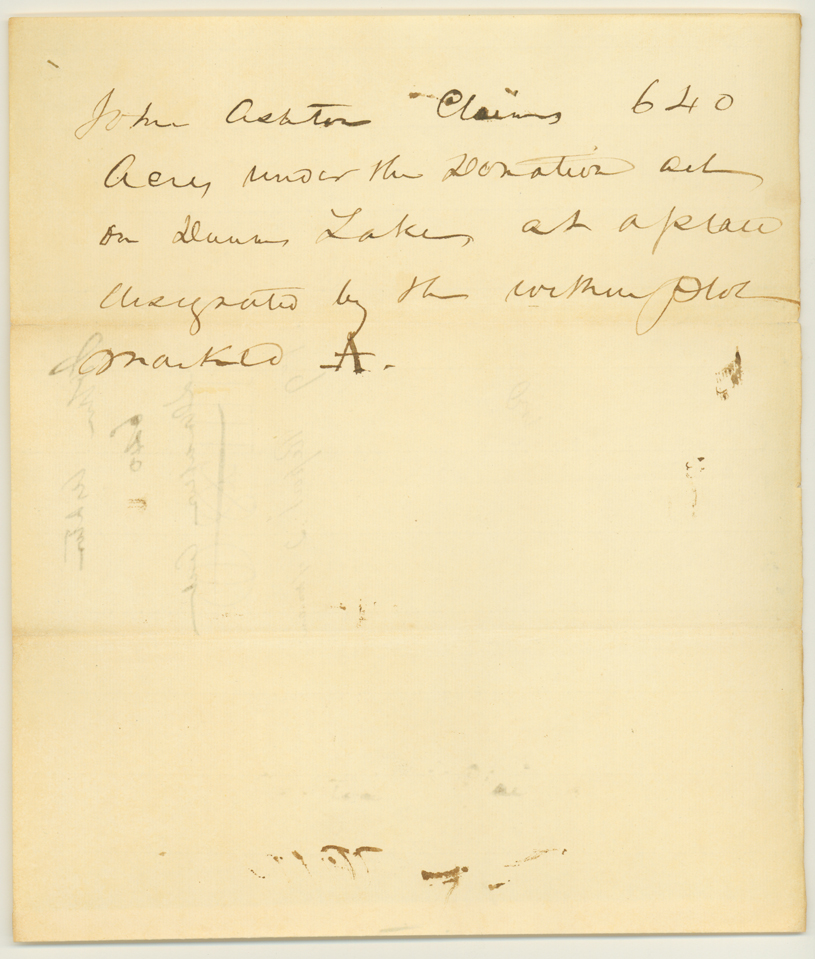 John Ashton Claims 640
Acres under the Donation act
on Dunns Lake, at a place
designated by the within plot
marked A.